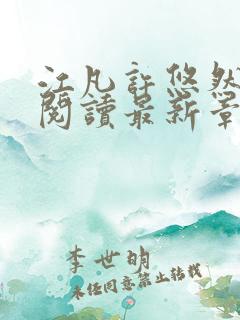 江凡許悠然
閱讀最新章
李世明
未经同意禁止转载